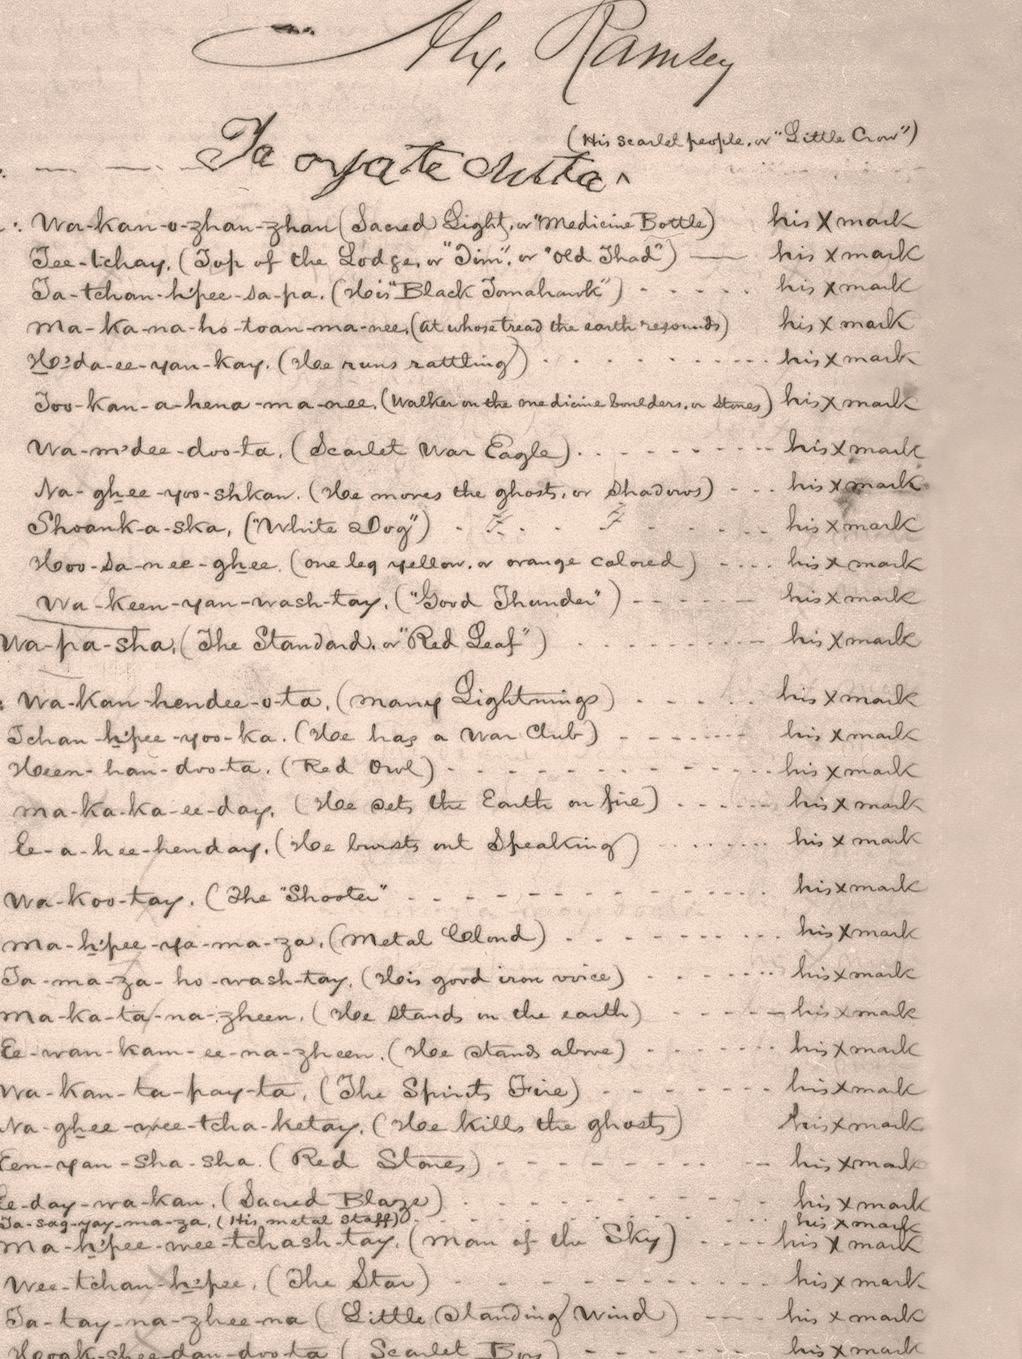 Alx. Ramsey
(His scarlet people, or "Little Crow")
Ta oyate duta
Wa-kan-o-zhan-zhan (Sacred Light, or "Medicine Bottle) his X mark
Tee-tchay, (Top of the Lodge, or "Jim", or "Old Thad") his X mark
Ta-tchan-h'pee-sa-pa. (His "Black Tomahawk") his X mark
Ma-ka-na-ho-toan-ma-nee, (at whose tread the earth resounds) his X mark
H'da-ee-yan-kay. (He runs rattling) his X mark
Too-kan-a-hena-ma-nee, (Walker on the medicine boulders, or Stones) his X mark
Wa-m'dee-doo-ta, (Scarlet War Eagle) his X mark
Na-ghee-yoo-shkan. (He moves the ghosts, or Shadows) his X mark
Shoank-a-ska, ("White Dog") his X mark
Hoo-sa-nee-ghee. (one leg yellow, or orange colored) his X mark
Wa-keen-yan-wash-tay, ("Good Thunder") his X mark
Wa-pa-sha, (The Standard, or "Red Leaf") his X mark
Wa-kan-hendee-o-ta, (many Lightnings) his X mark
Tchan-h'pee-yoo-ka. (He has a War Club) his X mark
Heen-han-doo-ta. (Red Owl) his X mark
Ma-ka-ka-ee-day, (He sets the Earth on fire) his X mark
Ee-a-hee-henday, (He bursts out Speaking) his X mark
Wa-koo-tay. (The "Shooter" his X mark
Ma-h'pee-ya-ma-za, (Metal Cloud) his X mark
Ta-ma-za-ho-wash-tay. (His good iron voice) his X mark
Ma-ka-ta-na-zheen. (He stands on the earth) his X mark
Ee-wan-kam-ee-na-zheen. (He stands above) his X mark
Wa-kan-ta-pay-ta, (The Spirits Fire) his X mark
Na-ghee-mee-tcha-ketay. (He kills the ghosts) his X mark
Een-yan-sha-sha. (Red Stones) his X mark
Ee-day-wa-kan. (Sacred Blaze) his X mark
Ta-sag-yay-ma-za, (His metal Staff) his X mark
Ma-h'pee-mee-tchash-tay. (man of the Sky) his X mark
Wee-tchan-h'pee. (The Star) his X mark
Ta-tay-na-zhee-na (Little Standing Wind) his X mark
Hoak-shee-dan-doo-ta (Scarlet Boy) his X mark